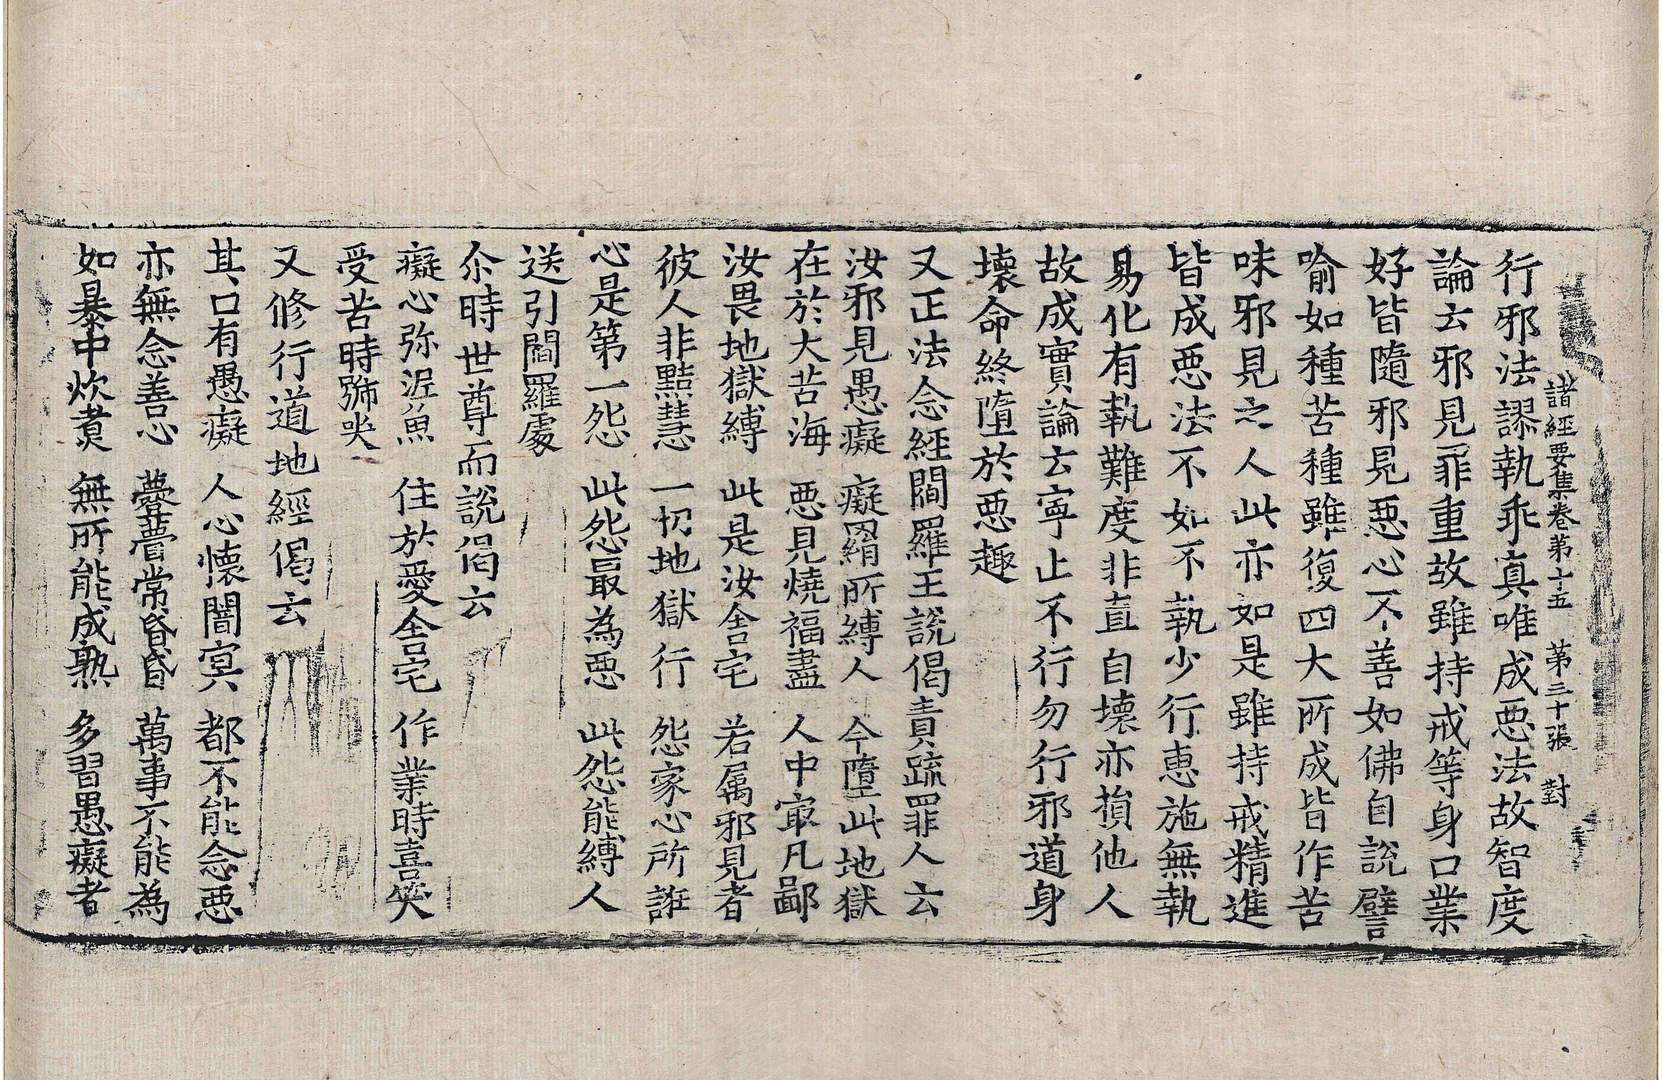 諸經要集卷第十五 第三十張 對
行邪法謬執乖真唯成惡法故智度
論云邪見罪重故雖持戒等身口業
好皆隨邪見惡心不善如佛自說譬
喻如種苦種雖復四大所成皆作苦
味邪見之人此亦如是雖持戒精進
皆成惡法不如不執少行惠施無執
易化有執難度非直自壞亦損他人
故成實論云寧止不行勿行邪道身
壞命終墮於惡趣
又正法念經閻羅王說偈責疏罪人云
汝邪見愚癡 癡羂所縛人 今墮此地獄
在於大苦海 惡見燒福盡 人中㝡凡鄙
汝畏地獄縛 此是汝舍宅 若属邪見者
彼人非黠慧 一切地獄行 怨家心所誑
心是第一怨 此怨㝡為惡 此怨能縛人
送引閻羅處
尒時世尊而說偈云
癡心弥泥魚 住於愛舍宅 作業時喜笑
受苦時號哭
又修行道地經偈云
其口有愚癡 人心懷闇冥 都不能念惡
亦無念善心 蓋瞢常昏昏 萬事不能為
如暴中炊煮 無所能成熟 多習愚癡者